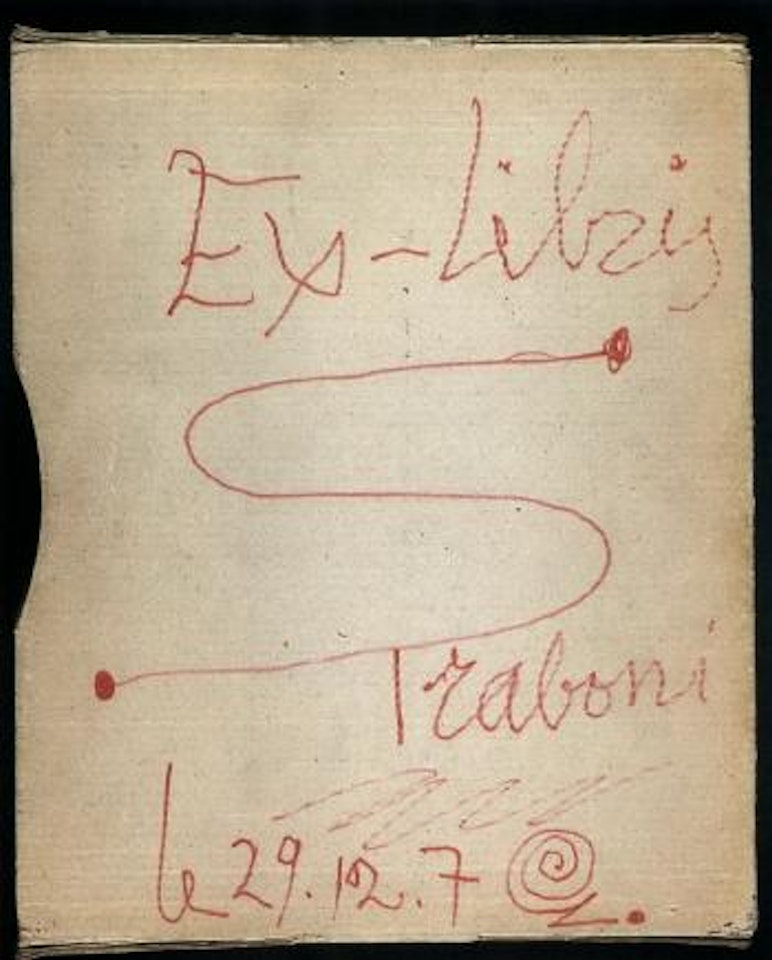 Ex-libris
Traboni
le 29.12.7